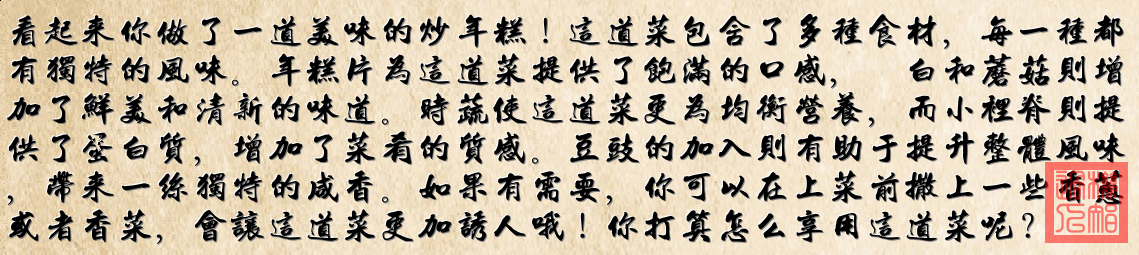 看起來你做了一道美味的炒年糕！這道菜包含了多種食材，每一種都
有獨特的風味。年糕片為這道菜提供了飽滿的口感，　白和蘑菇則增
加了鮮美和清新的味道。時蔬使這道菜更為均衡營養，而小裡脊則提
供了蛋白質，增加了菜肴的質感。豆豉的加入則有助于提升整體風味
，帶來一絲獨特的咸香。如果有需要，你可以在上菜前撒上一些香蔥
或者香菜，會讓這道菜更加誘人哦！你打算怎么享用這道菜呢？